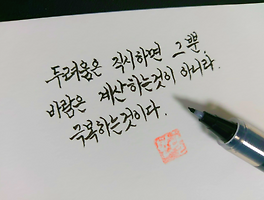 두려움은 직시하면 그뿐.
바람은 계산하는것이 아니라.
극복하는것이다.